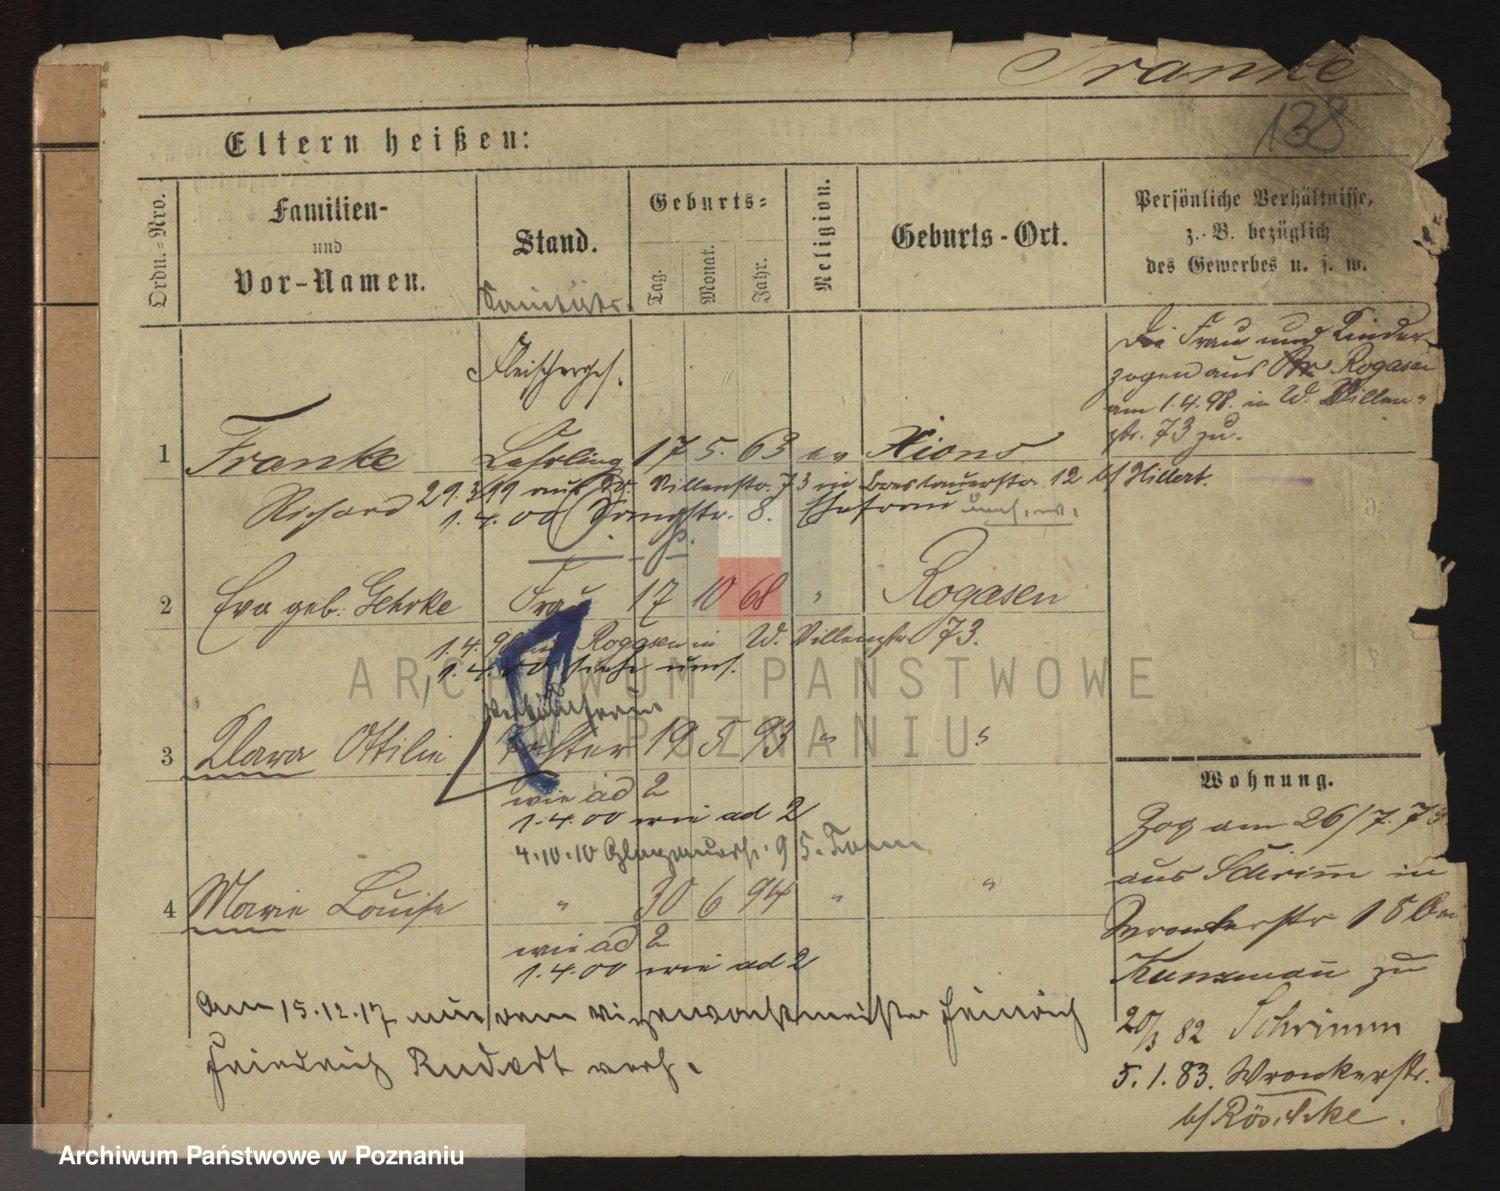 Franke
138
Eltern heißen:
Ordn.-Nro.
Familien-
und
Vor-Namen.
Stand.
Geburts-
Tag.
Monat.
Jahr.
Religion.
Geburts-Ort.
Persönliche Verhältnisse,
z. B. bezüglich
des Gewerbes u. s. w.
Die Frau und Kinder
zogen aus Rogasen
am 1.4.98. in W. Villen-
str. 73 zu.
Fleischerges.
1 Franke Lehrling 17 5. 63 ev Xions
Richard 29.3.99 aus Villenstr. 73 in Breslauerstr. 12 b/ Hillert.
1.4.00 8. Ehefrau
2 Eva geb. Gehrke Frau 17 10 68 " Rogasen
1.4.98 aus Rogasen in W. Villenstr 73.
1.4.00 siehe ums.
Verkäuferin
3 Clara Ottilie Tochter 19 5 93 " "
wie ad 2
1.4.00 wie ad 2
4.10.10
4 Marie Louise " 30 6 94 " "
wie ad 2
1.4.00 wie ad 2
Am 15.12.17 mit dem Vizewachtmeister Heinrich
Friedrich Rudert verh.
Wohnung.
Zog am 26/7. 78
aus Schrimm in
Wronkerstr 15 bei
Kunzmann zu
20/3 82 Schrimm
5.1.83. Wronkerstr.
b/ Röschke.
ARCHIWUM PAŃSTWOWE
W POZNANIU
Archiwum Państwowe w Poznaniu